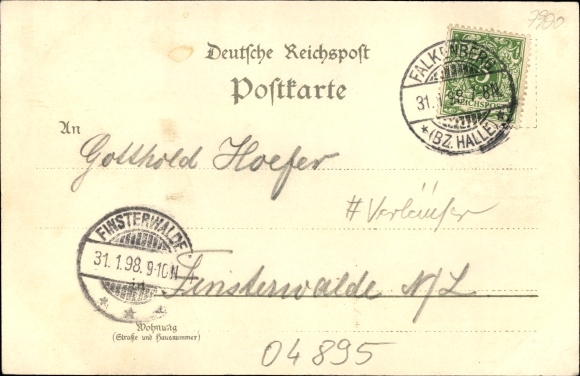 7990
Deutsche Reichspost
Postkarte
FALKENBERG
31.1.98.7-8N
* (BZ. HALLE) *
5
REICHSPOST
An
Gotthold Hoefer
# Verläufer
FINSTERWALDE
31.1.98.9-10N
* * *
in
Finsterwalde N/L
Wohnung
(Straße und Hausnummer)
04895